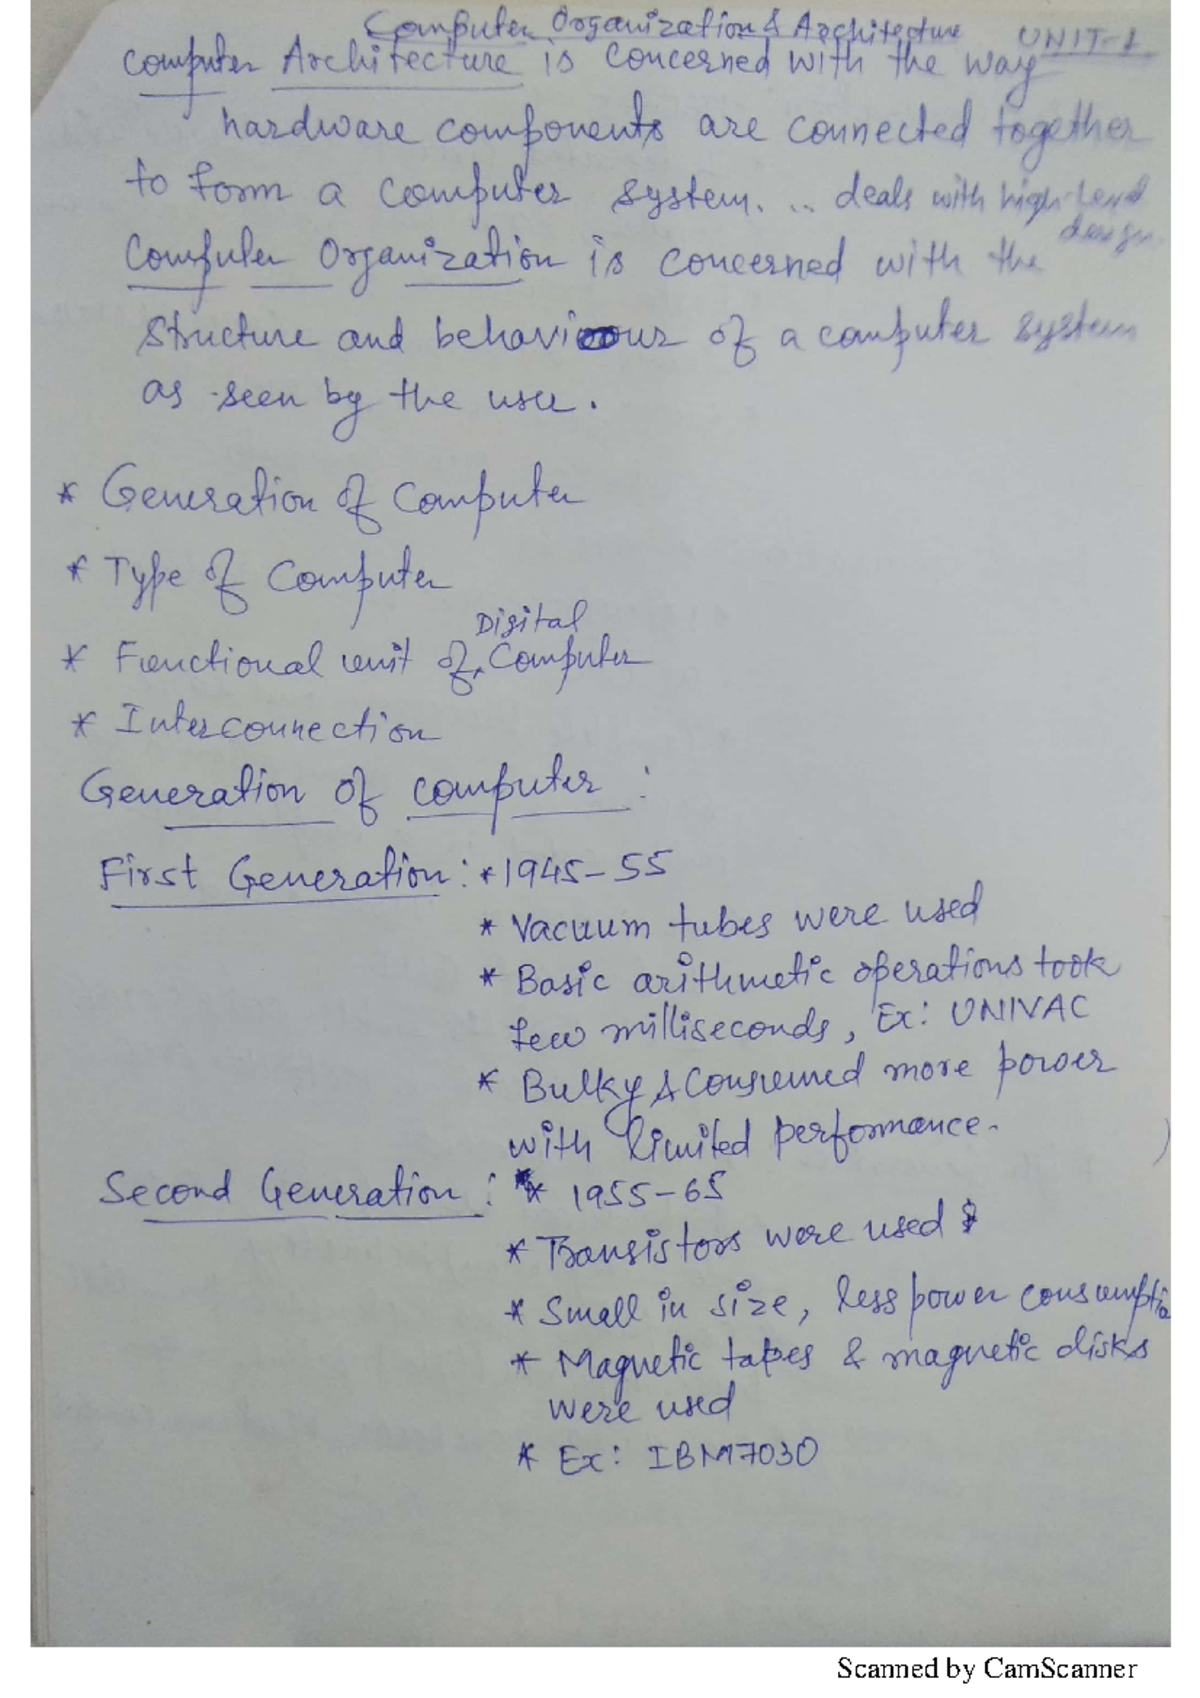 Computer Organization & Architecture UNIT-1
Computer Architecture is concerned with the way
hardware components are connected together
to form a computer system. ... deals with high-level
design.
Computer Organization is concerned with the
structure and behaviour of a computer system
as seen by the user.
* Generation of Computer
* Type of Computer
Digital
* Functional unit of Computer
* Interconnection
Generation of computer :
First Generation : * 1945-55
* Vacuum tubes were used
* Basic arithmetic operations took
few milliseconds, Ex: UNIVAC
* Bulky & Consumed more power
with limited performance.
Second Generation : * 1955-65
* Transistors were used
* Small in size, less power consumptio
* Magnetic tapes & magnetic disks
were used
* Ex: IBM7030
Scanned by CamScanner